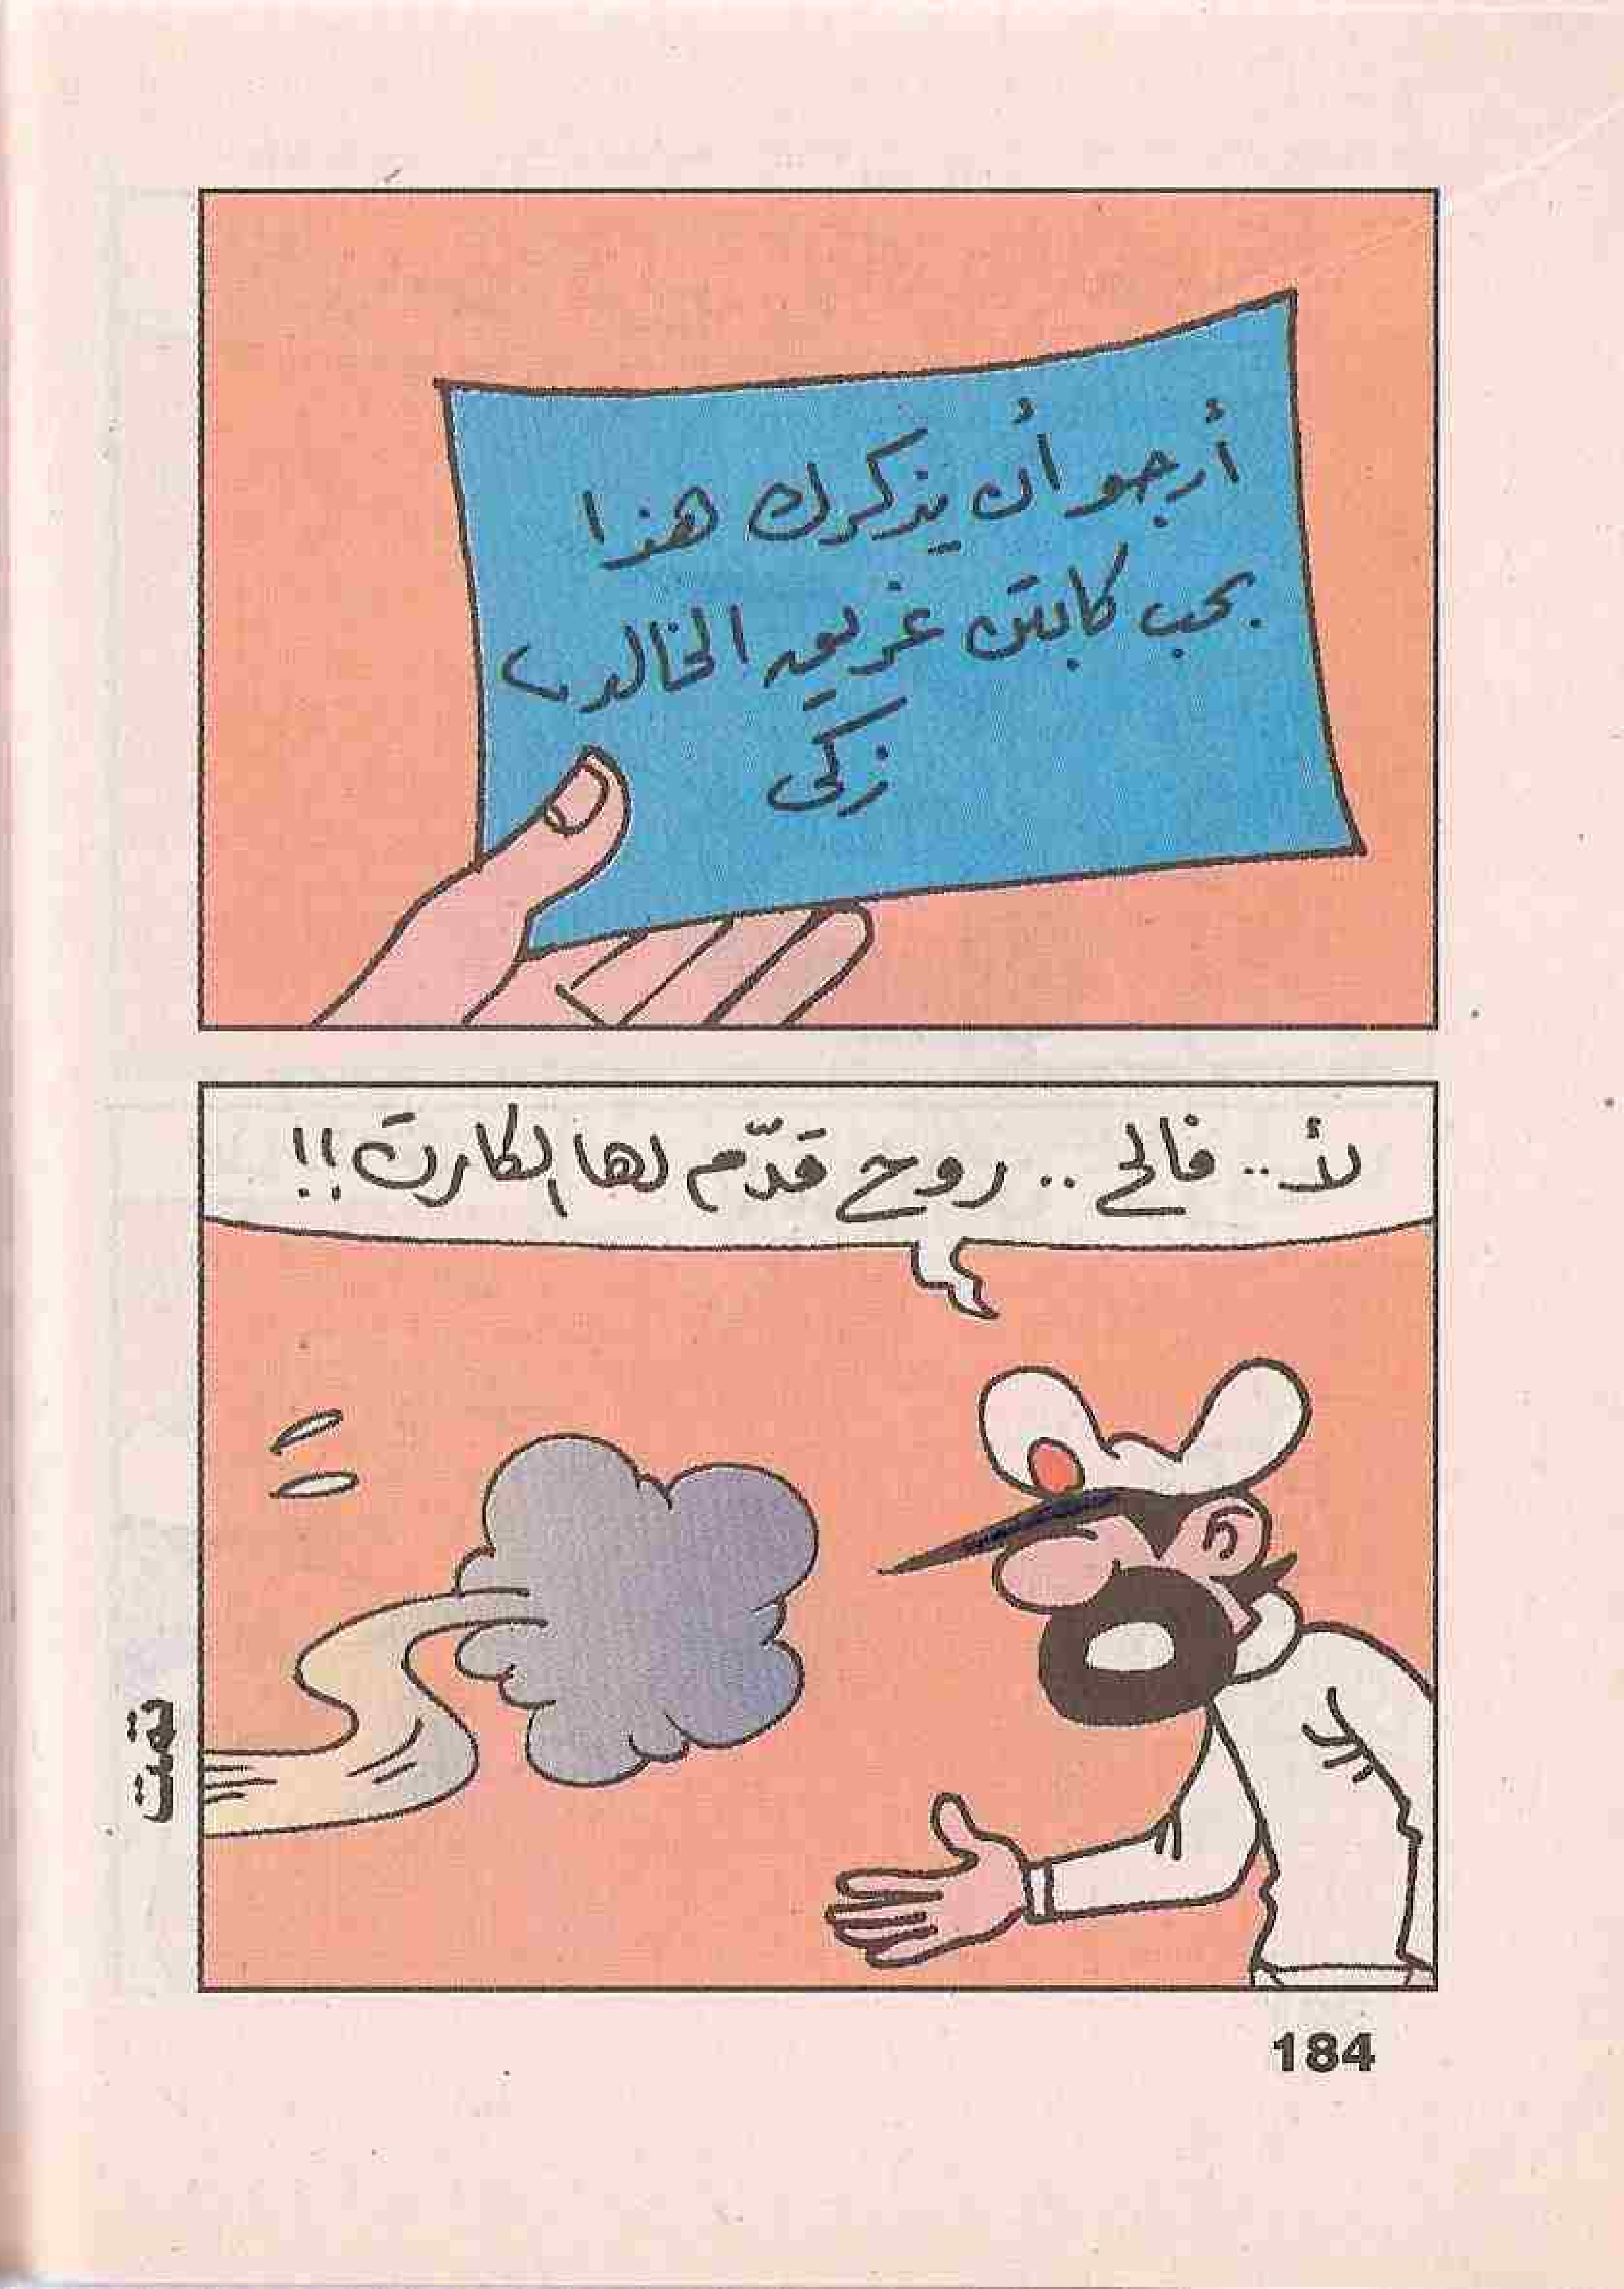 أرجو أن يذكرك هذا
بحب كابتن غريق الخالد
زكى
لأ .. فالح .. روح قدّم لها الكارت !!
تمت
184